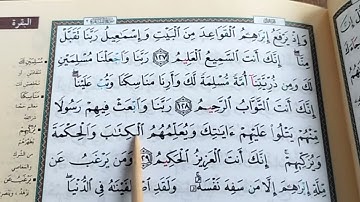 البقرة
وَإِذْ يَرْفَعُ إِبْرَٰهِـۧمُ ٱلْقَوَاعِدَ مِنَ ٱلْبَيْتِ وَإِسْمَـٰعِيلُ رَبَّنَا تَقَبَّلْ
مِنَّآ ۖ إِنَّكَ أَنتَ ٱلسَّمِيعُ ٱلْعَلِيمُ ١٢٧ رَبَّنَا وَٱجْعَلْنَا مُسْلِمَيْنِ
لَكَ وَمِن ذُرِّيَّتِنَآ أُمَّةً مُّسْلِمَةً لَّكَ وَأَرِنَا مَنَاسِكَنَا وَتُبْ عَلَيْنَآ ۖ
إِنَّكَ أَنتَ ٱلتَّوَّابُ ٱلرَّحِيمُ ١٢٨ رَبَّنَا وَٱبْعَثْ فِيهِمْ رَسُولًا
مِّنْهُمْ يَتْلُوا۟ عَلَيْهِمْ ءَايَـٰتِكَ وَيُعَلِّمُهُمُ ٱلْكِتَـٰبَ وَٱلْحِكْمَةَ
وَيُزَكِّيهِمْ ۚ إِنَّكَ أَنتَ ٱلْعَزِيزُ ٱلْحَكِيمُ ١٢٩ وَمَن يَرْغَبُ عَن
مِّلَّةِ إِبْرَٰهِـۧمَ إِلَّا مَن سَفِهَ نَفْسَهُۥ ۚ وَلَقَدِ ٱصْطَفَيْنَـٰهُ فِى ٱلدُّنْيَا ۖ